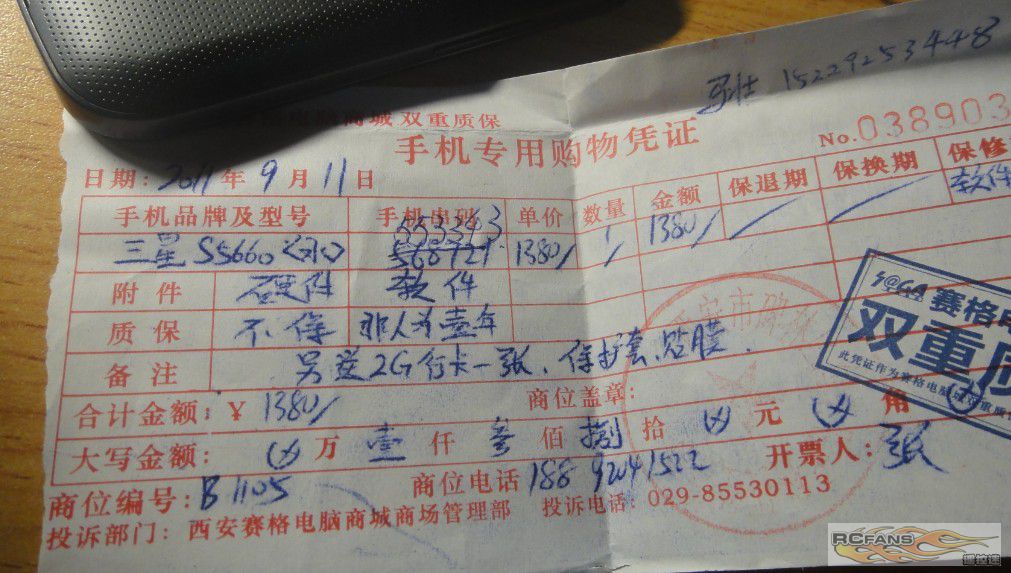 15229253448
商城双重质保
手机专用购物凭证
No.038903
日期: 2011 年 9 月 11 日
手机品牌及型号 手机串码 单价 数量 金额 保退期 保换期 保修
553343
三星 S5660 568721 1380/ 1/ 1380/ / / 软件
附件 硬件 软件
质保 不保 非人为壹年
备注 另送2G行卡一张、保护套、贴膜.
合计金额: ¥ 1380/ 商位盖章:
大写金额: 万 壹 仟 叁 佰 捌 拾 元 角
商位编号: B1105 商位电话 188 92041522 开票人: 张
投诉部门: 西安赛格电脑商城商场管理部 投诉电话: 029-85530113
S@GA 赛格电
双重质
此凭证作为赛格电脑
RCFANS
遥控迷